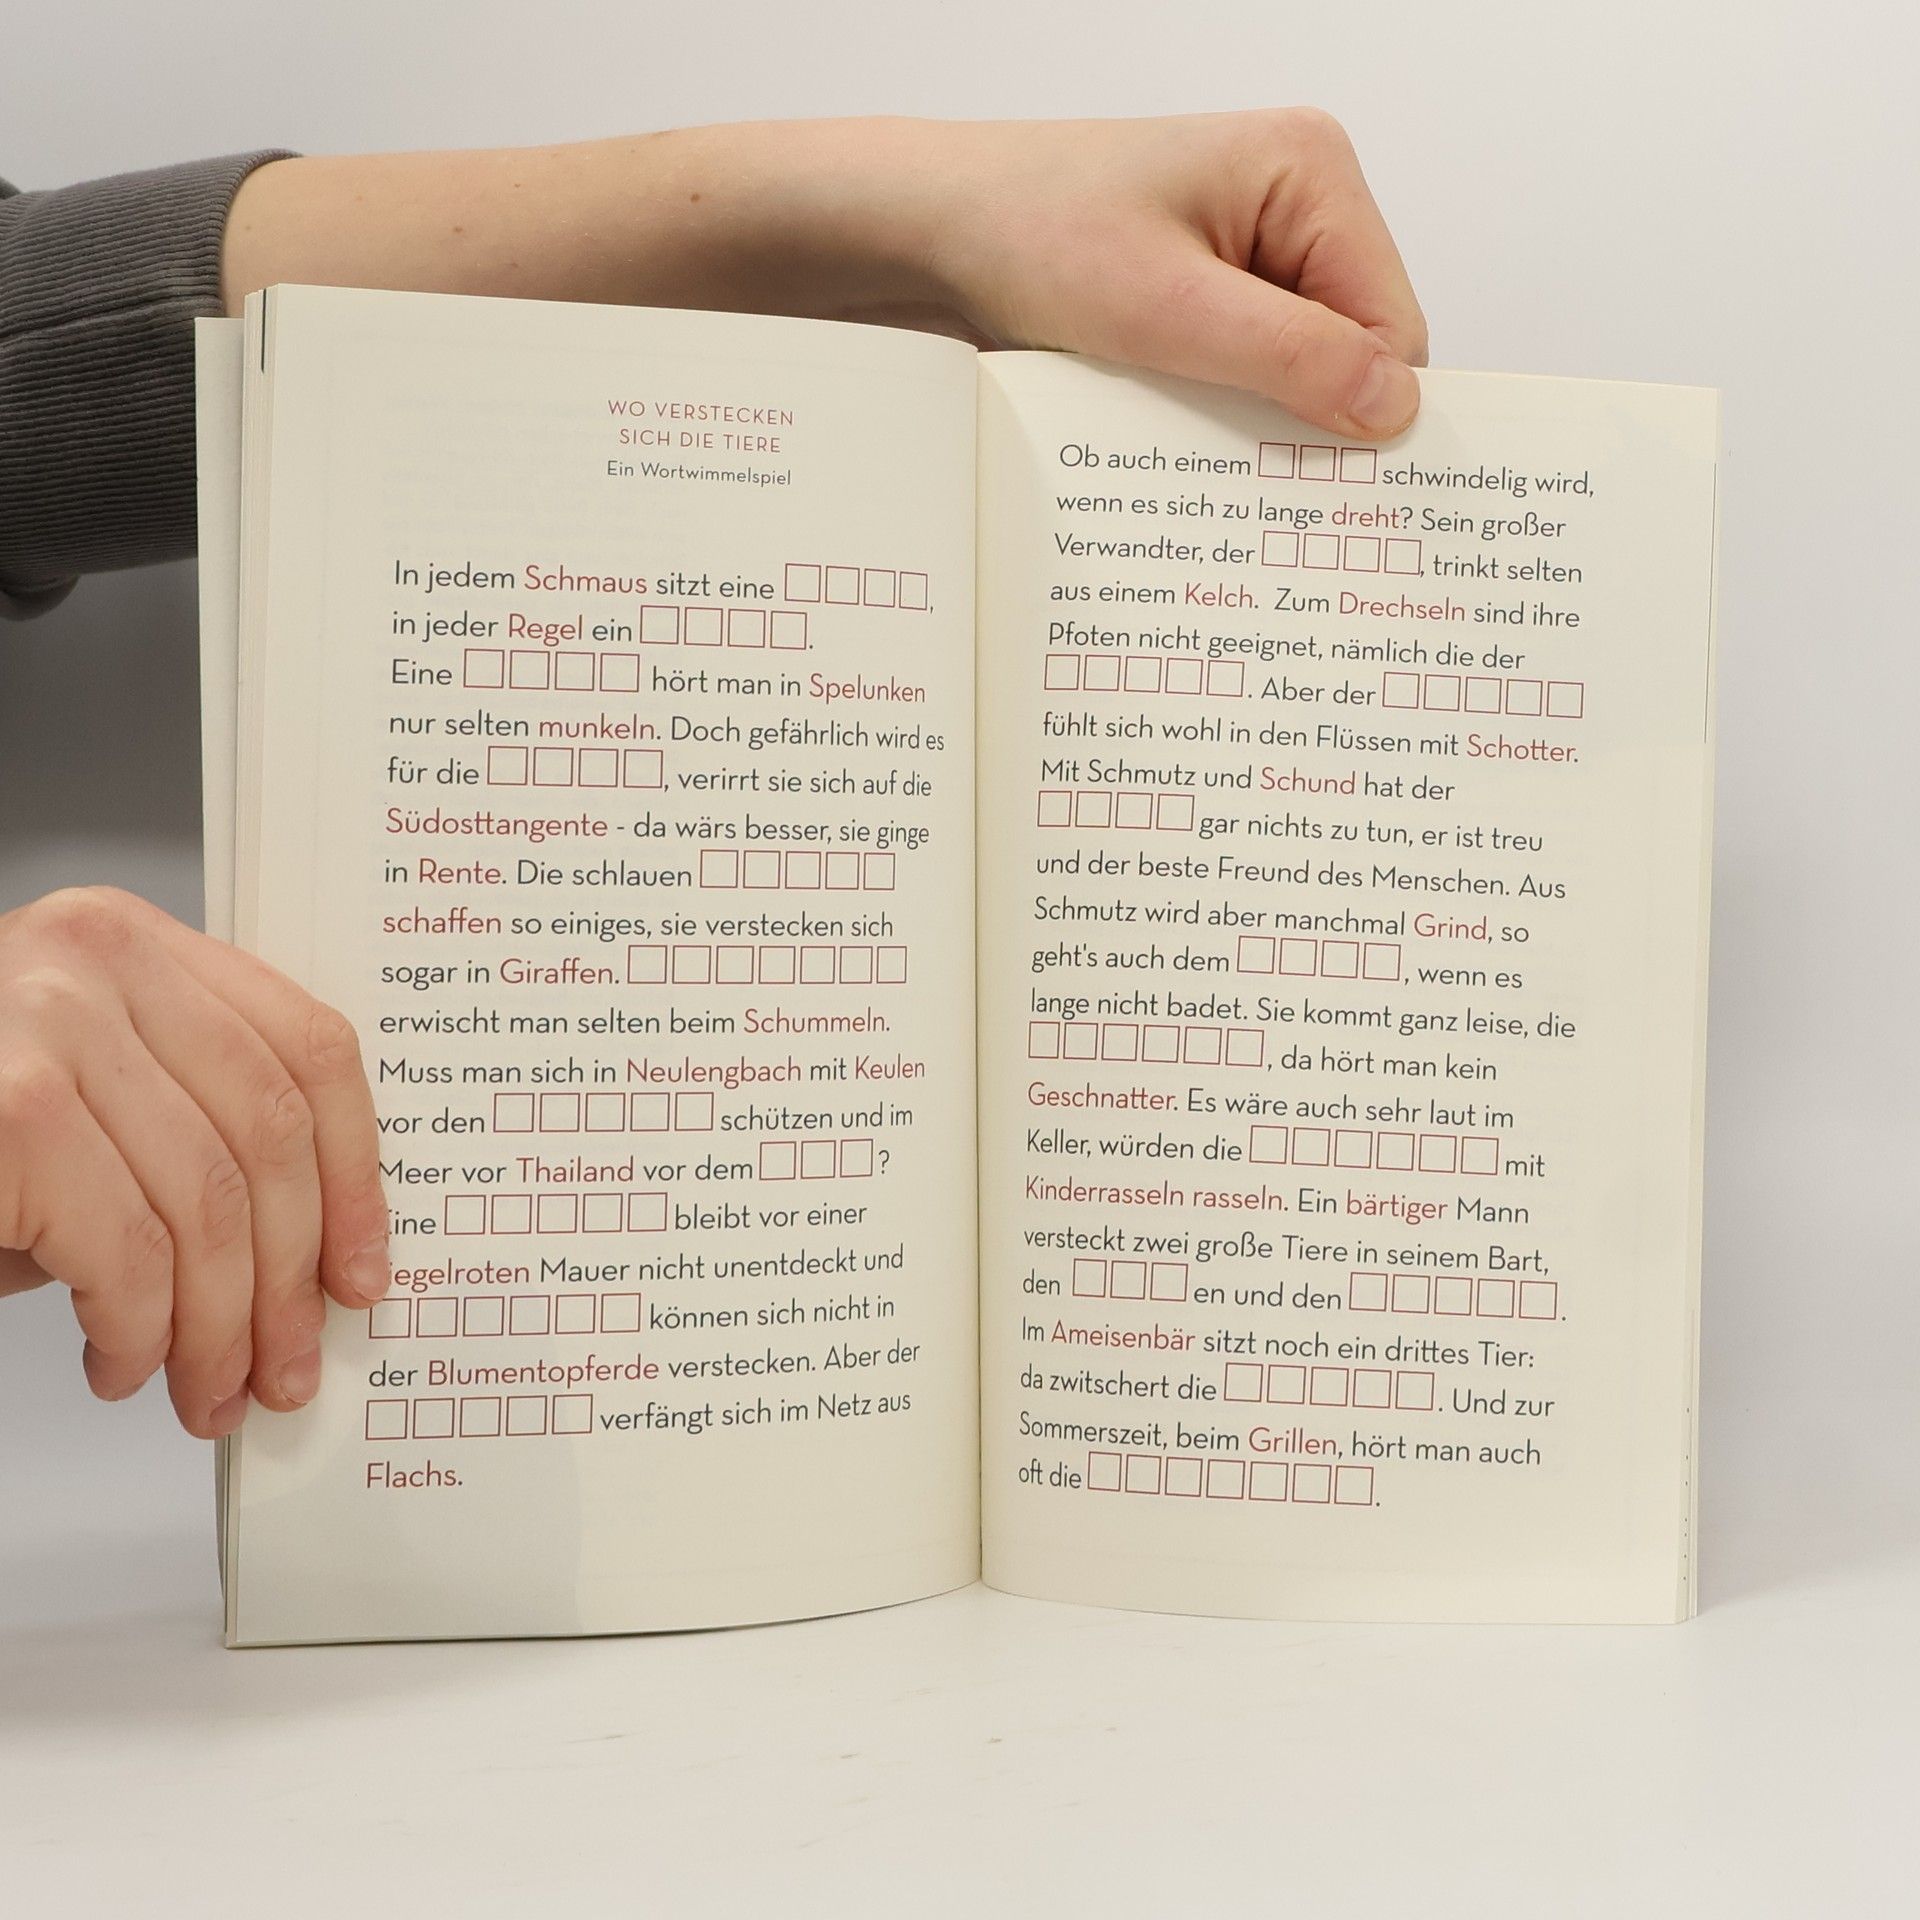 WO VERSTECKEN
SICH DIE TIERE
Ein Wortwimmelspiel
In jedem Schmaus sitzt eine □□□□,
in jeder Regel ein □□□□.
Eine □□□□ hört man in Spelunken
nur selten munkeln. Doch gefährlich wird es
für die □□□□, verirrt sie sich auf die
Südosttangente - da wärs besser, sie ginge
in Rente. Die schlauen □□□□□
schaffen so einiges, sie verstecken sich
sogar in Giraffen. □□□□□□□
erwischt man selten beim Schummeln.
Muss man sich in Neulengbach mit Keulen
vor den □□□□□ schützen und im
Meer vor Thailand vor dem □□□?
ine □□□□□ bleibt vor einer
iegelroten Mauer nicht unentdeckt und
□□□□□□ können sich nicht in
der Blumentopferde verstecken. Aber der
□□□□□ verfängt sich im Netz aus
Flachs.
Ob auch einem □□□ schwindelig wird,
wenn es sich zu lange dreht? Sein großer
Verwandter, der □□□□, trinkt selten
aus einem Kelch. Zum Drechseln sind ihre
Pfoten nicht geeignet, nämlich die der
□□□□□. Aber der □□□□□
fühlt sich wohl in den Flüssen mit Schotter.
Mit Schmutz und Schund hat der
□□□□ gar nichts zu tun, er ist treu
und der beste Freund des Menschen. Aus
Schmutz wird aber manchmal Grind, so
geht's auch dem □□□□, wenn es
lange nicht badet. Sie kommt ganz leise, die
□□□□□□, da hört man kein
Geschnatter. Es wäre auch sehr laut im
Keller, würden die □□□□□□ mit
Kinderrasseln rasseln. Ein bärtiger Mann
versteckt zwei große Tiere in seinem Bart,
den □□□en und den □□□□□.
Im Ameisenbär sitzt noch ein drittes Tier:
da zwitschert die □□□□□. Und zur
Sommerszeit, beim Grillen, hört man auch
oft die □□□□□□□.